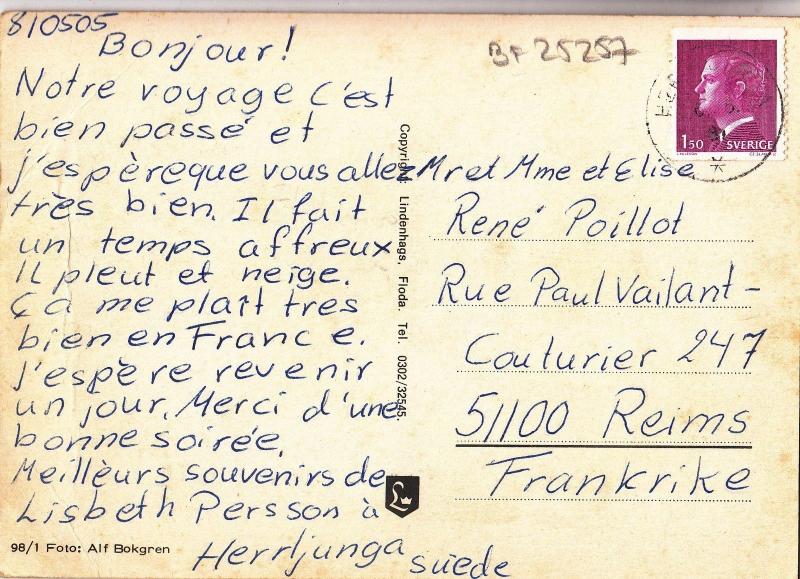 810505
Bonjour!
Notre voyage c'est
bien passé et
j'espèreque vous allez
très bien. Il fait
un temps affreux
Il pleut et neige.
Ça me plaît tres
bien en France.
J'espère revenir
un jour. Merci d'une
bonne soirée.
Meillèurs souvenirs de
Lisbeth Persson à
Herrljunga suède
98/1 Foto: Alf Bokgren
Copyright: Lindenhags, Floda. Tel. 0302/32545.
BF 25257
1.50 SVERIGE
Mr et Mme et Elise
René Poillot
Rue Paul Vailant-
Couturier 247
51100 Reims
Frankrike